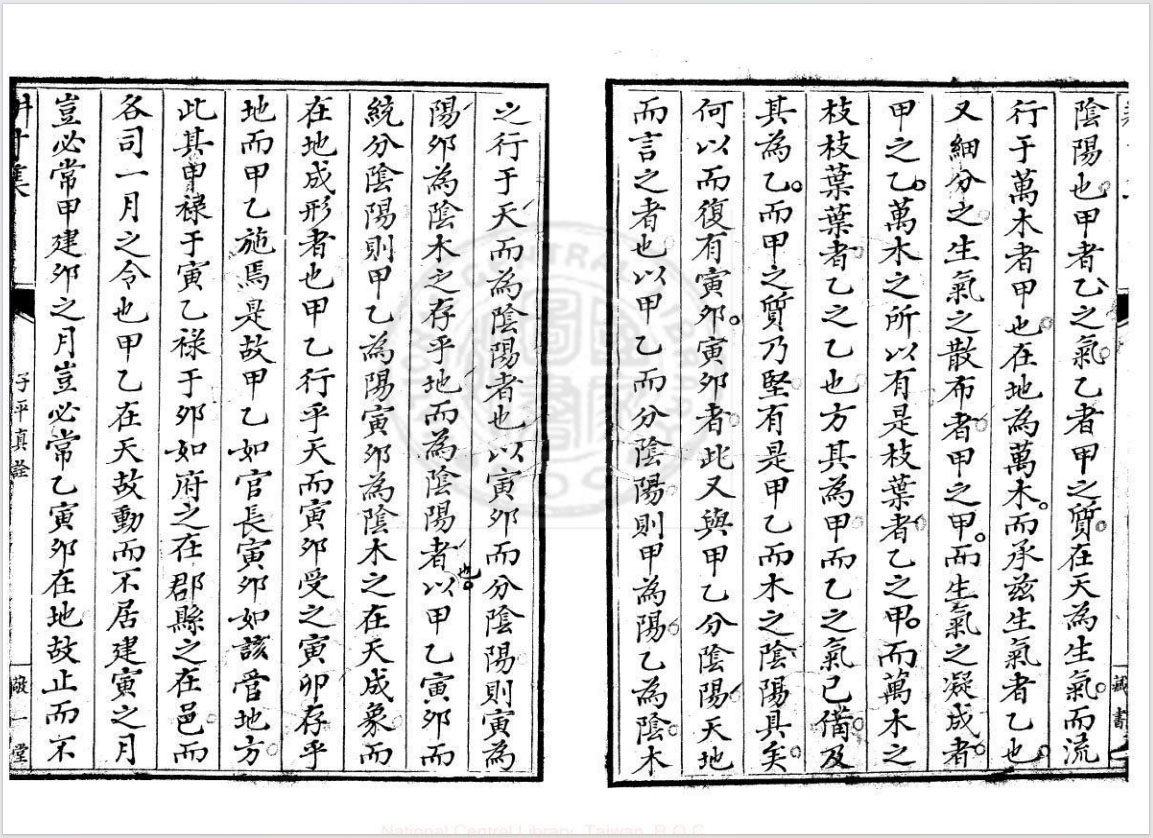 陰陽也甲者乙之氣乙者甲之質在天為生氣而流
行于萬木者甲也在地為萬木而承茲生氣者乙也
又細分之生氣之散布者甲之甲而生氣之凝成者
甲之乙萬木之所以有是枝葉者乙之甲而萬木之
枝枝葉葉者乙之乙也方其為甲而乙之氣已備及
其為乙而甲之質乃堅有是甲乙而木之陰陽具矣
何以而復有寅卯寅卯者此又與甲乙分陰陽天地
而言之者也以甲乙而分陰陽則甲為陽乙為陰木
之行于天而為陰陽者也以寅卯而分陰陽則寅為
陽卯為陰木之存乎地而為陰陽者也以甲乙寅卯而
統分陰陽則甲乙為陽寅卯為陰木之在天成象而
在地成形者也甲乙行乎天而寅卯受之寅卯存乎
地而甲乙施焉是故甲乙如官長寅卯如該管地方
此其甲祿于寅乙祿于卯如府之在郡縣之在邑而
各司一月之令也甲乙在天故動而不居建寅之月
豈必常甲建卯之月豈必常乙寅卯在地故止而不
子平真詮
National Central Library, Taiwan, R.O.C